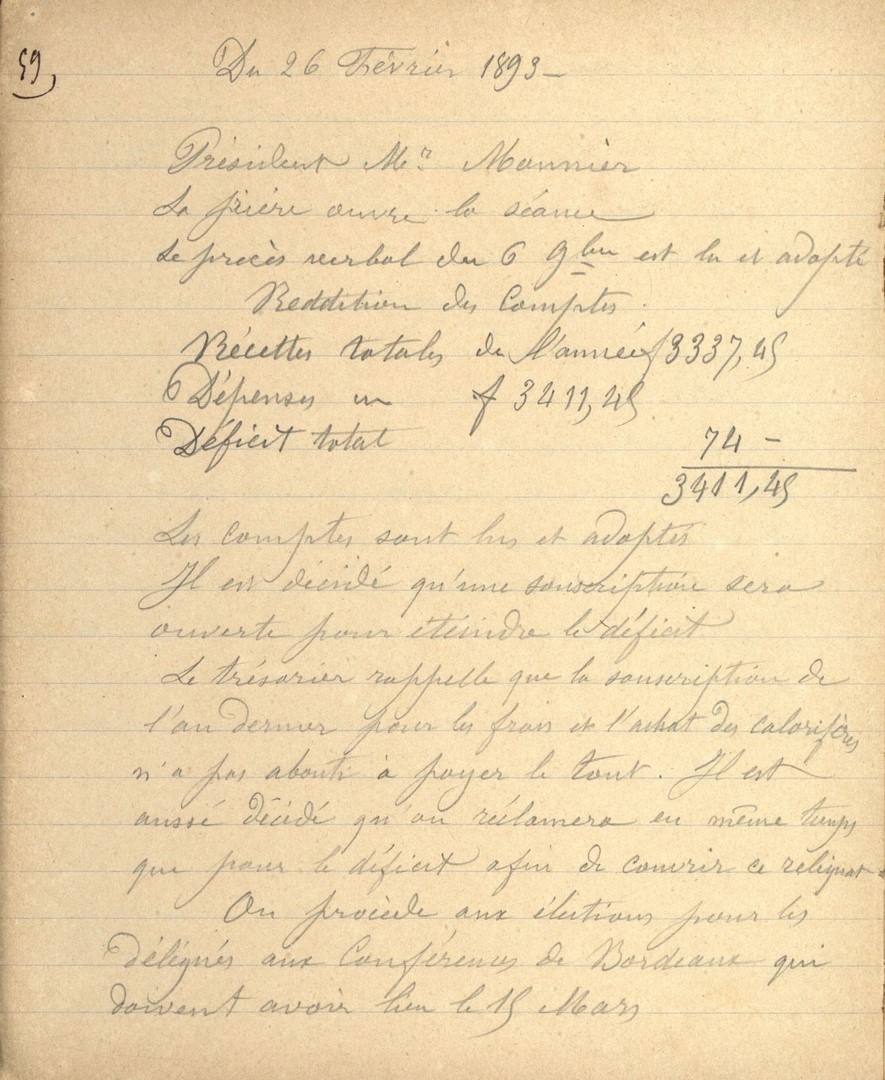 59
Du 26 Février 1893 -
Président Mr. Monnier
La prière ouvre la séance
Le procès verbal du 6 9bre est lu et adopté
Reddition des Comptes.
Récettes totales de l'année f 3337,45
Dépenses en f 3411,45
Déficit total 74 -
3411,45
Les comptes sont lus et adoptés
Il est décidé qu'une souscription sera
ouverte pour éteindre le déficit
Le trésorier rappelle que la souscription de
l'an dernier pour les frais et l'achat des calorifères
n'a pas abouti à payer le tout. Il est
aussi décidé qu'on réclamera en même temps
que pour le déficit afin de couvrir ce reliquat.
On procède aux élections pour les
délégués aux Conférences de Bordeaux qui
doivent avoir lieu le 15 Mars